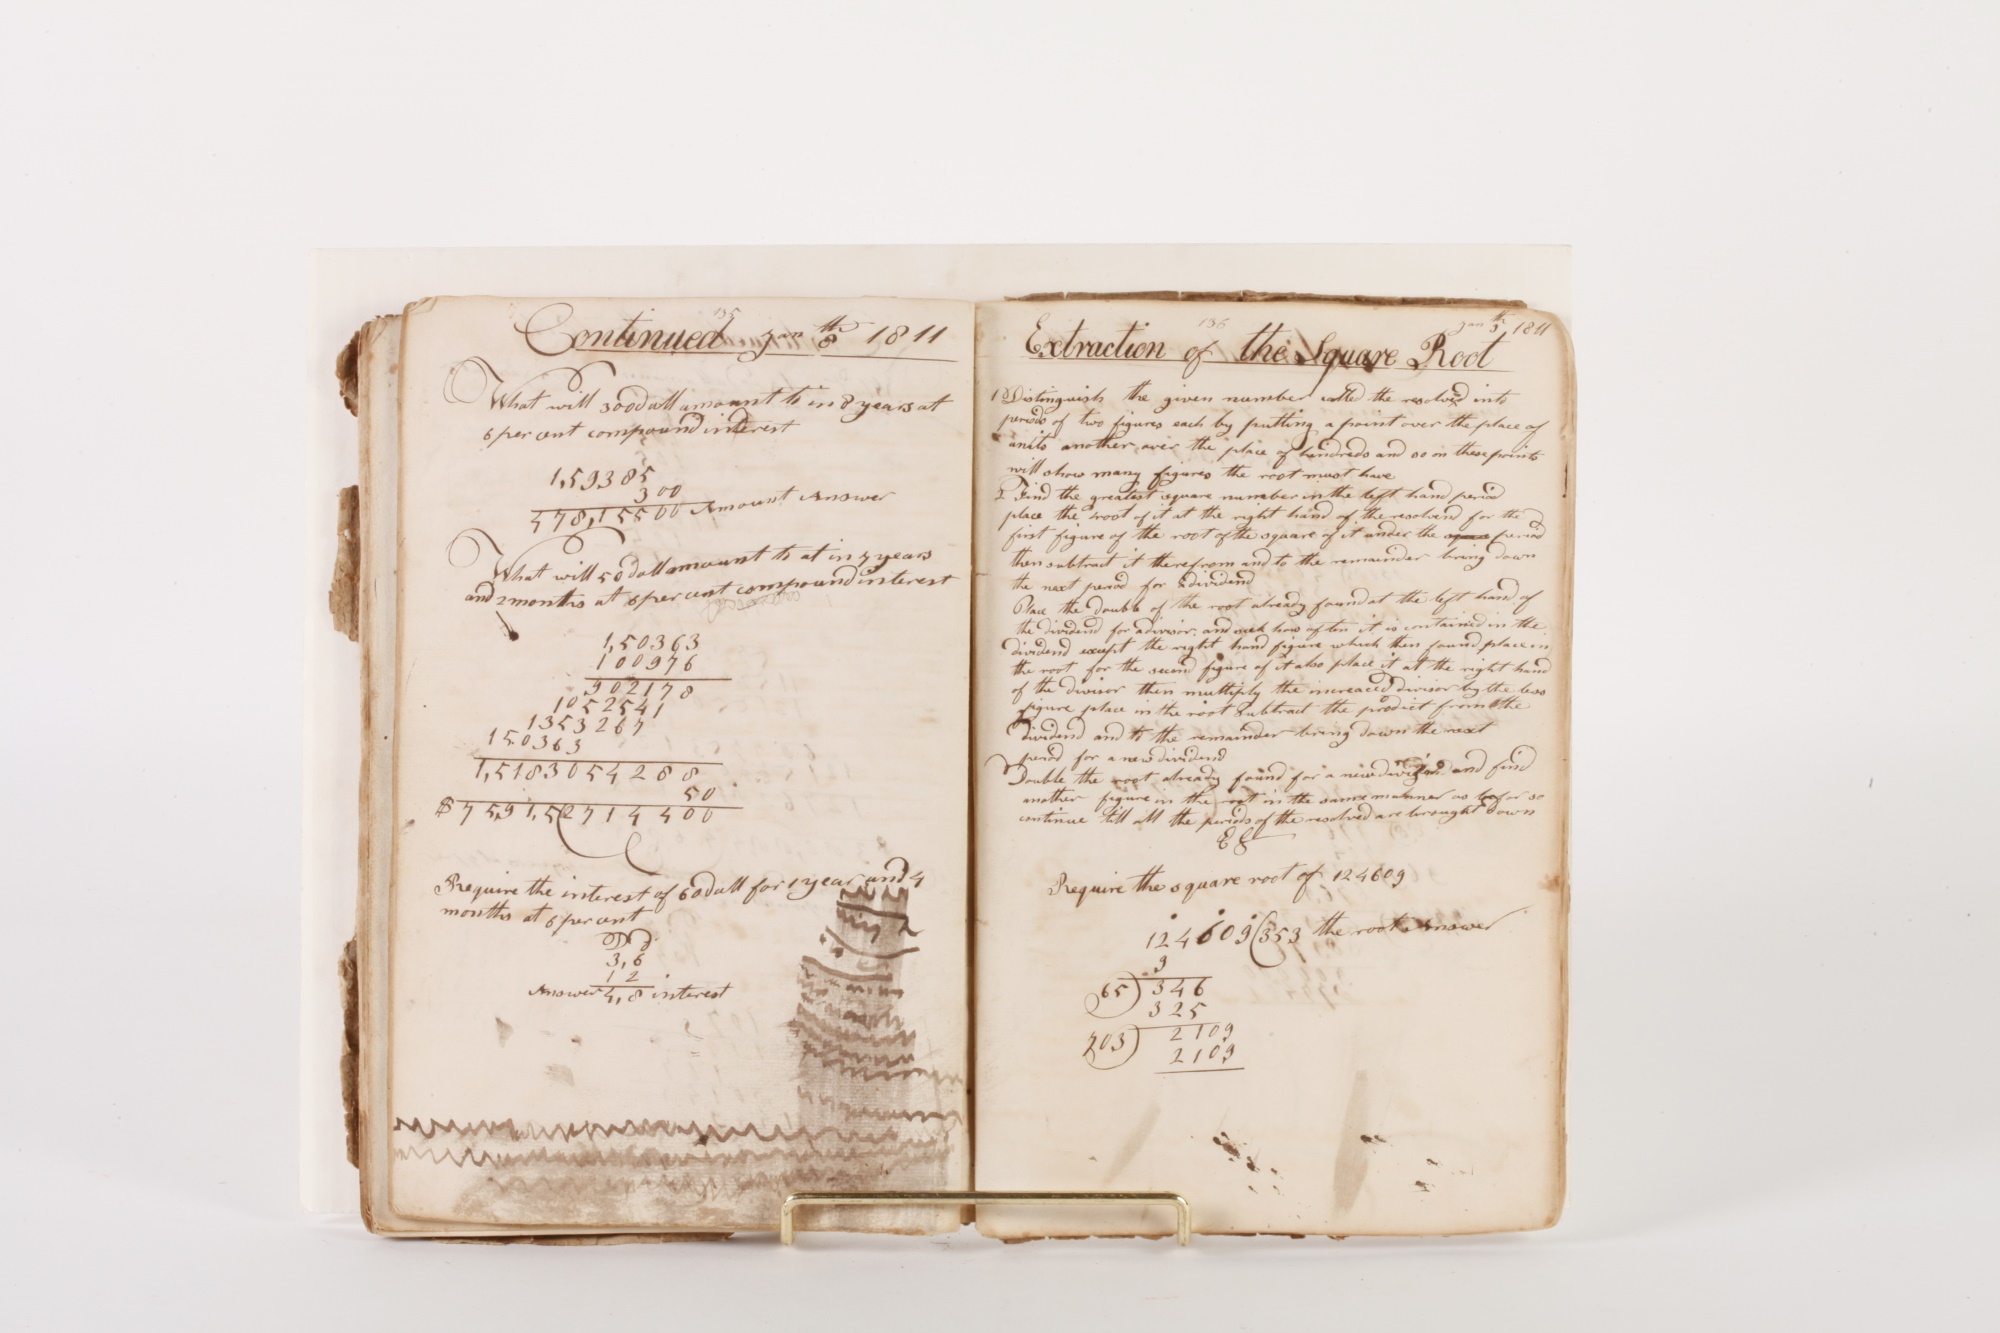 135
Continued Jan 8th 1811
What will 300 doll amount to in 8 years at
6 per cent compound interest
1,59385
300
478,15500 Amount Answer
What will 50 doll amount to at in 7 years
and 2 months at 6 per cent compound interest
1,50363
100976
902178
1052541
1353267
150363
1,5183054288
50
$75,91,5(2714400
Require the interest of 60 doll for 1 year and 4
months at 6 per cent
D d
3,6
12
Answer 4,8 interest
136
Jan 9th, 1811
Extraction of the Square Root
1 Distinguish the given number called the resolved into
periods of two figures each by putting a point over the place of
units another over the place of hundreds and so on these points
will show many figures the root must have
2 Find the greatest square number in the left hand period
place the root of it at the right hand of the resolvend for the
first figure of the root of the square of it under the period
then subtract it therefrom and to the remainder bring down
the next period for a dividend
Place the double of the root already found at the left hand of
the dividend for a divisor, and seek how often it is contained in the
dividend except the right hand figure which then found place in
the root for the second figure of it also place it at the right hand
of the divisor then multiply the increaced divisor by the less
figure place in the root subtract the product from the
dividend and to the remainder bring down the next
period for a new dividend
Double the root already found for a new and find
another figure in the root in the same manner as before so
continue till all the periods of the resolved are brought down
E G
Require the square root of 124609
124609(353 the root Answer
9
65) 346
325
703) 2109
2109